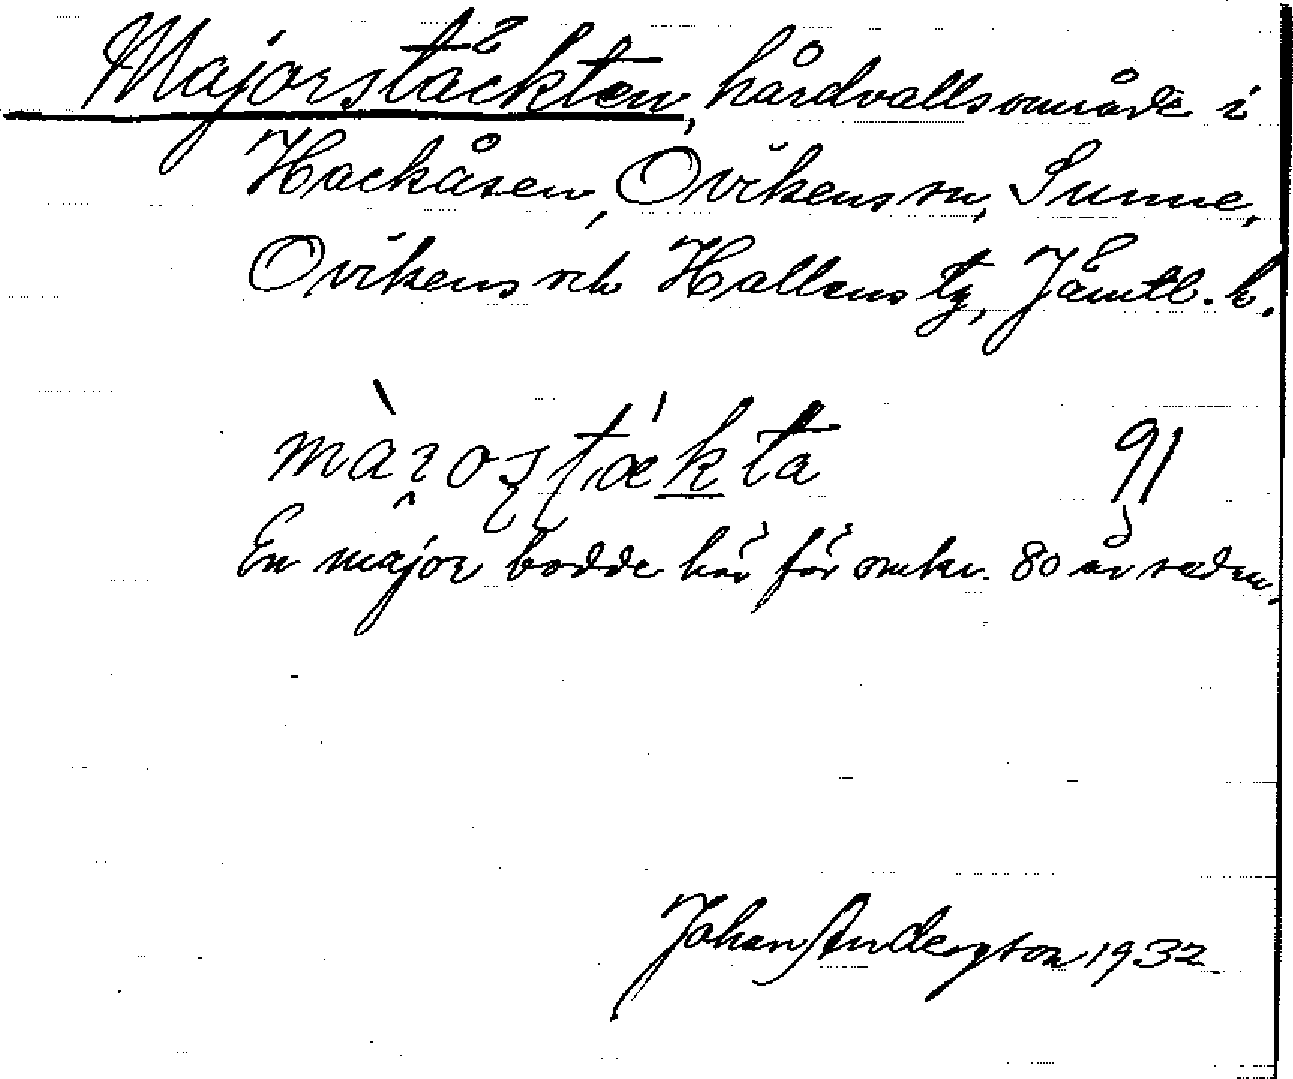 Majorstäckten, hårdvallsområde i
Hackåsen, Ovikens sn, Sunne,
Ovikens och Hallens tg, Jämtl. l.
91
En major bodde här för omkr. 80 år sedan.
Johan Anderzson 1932